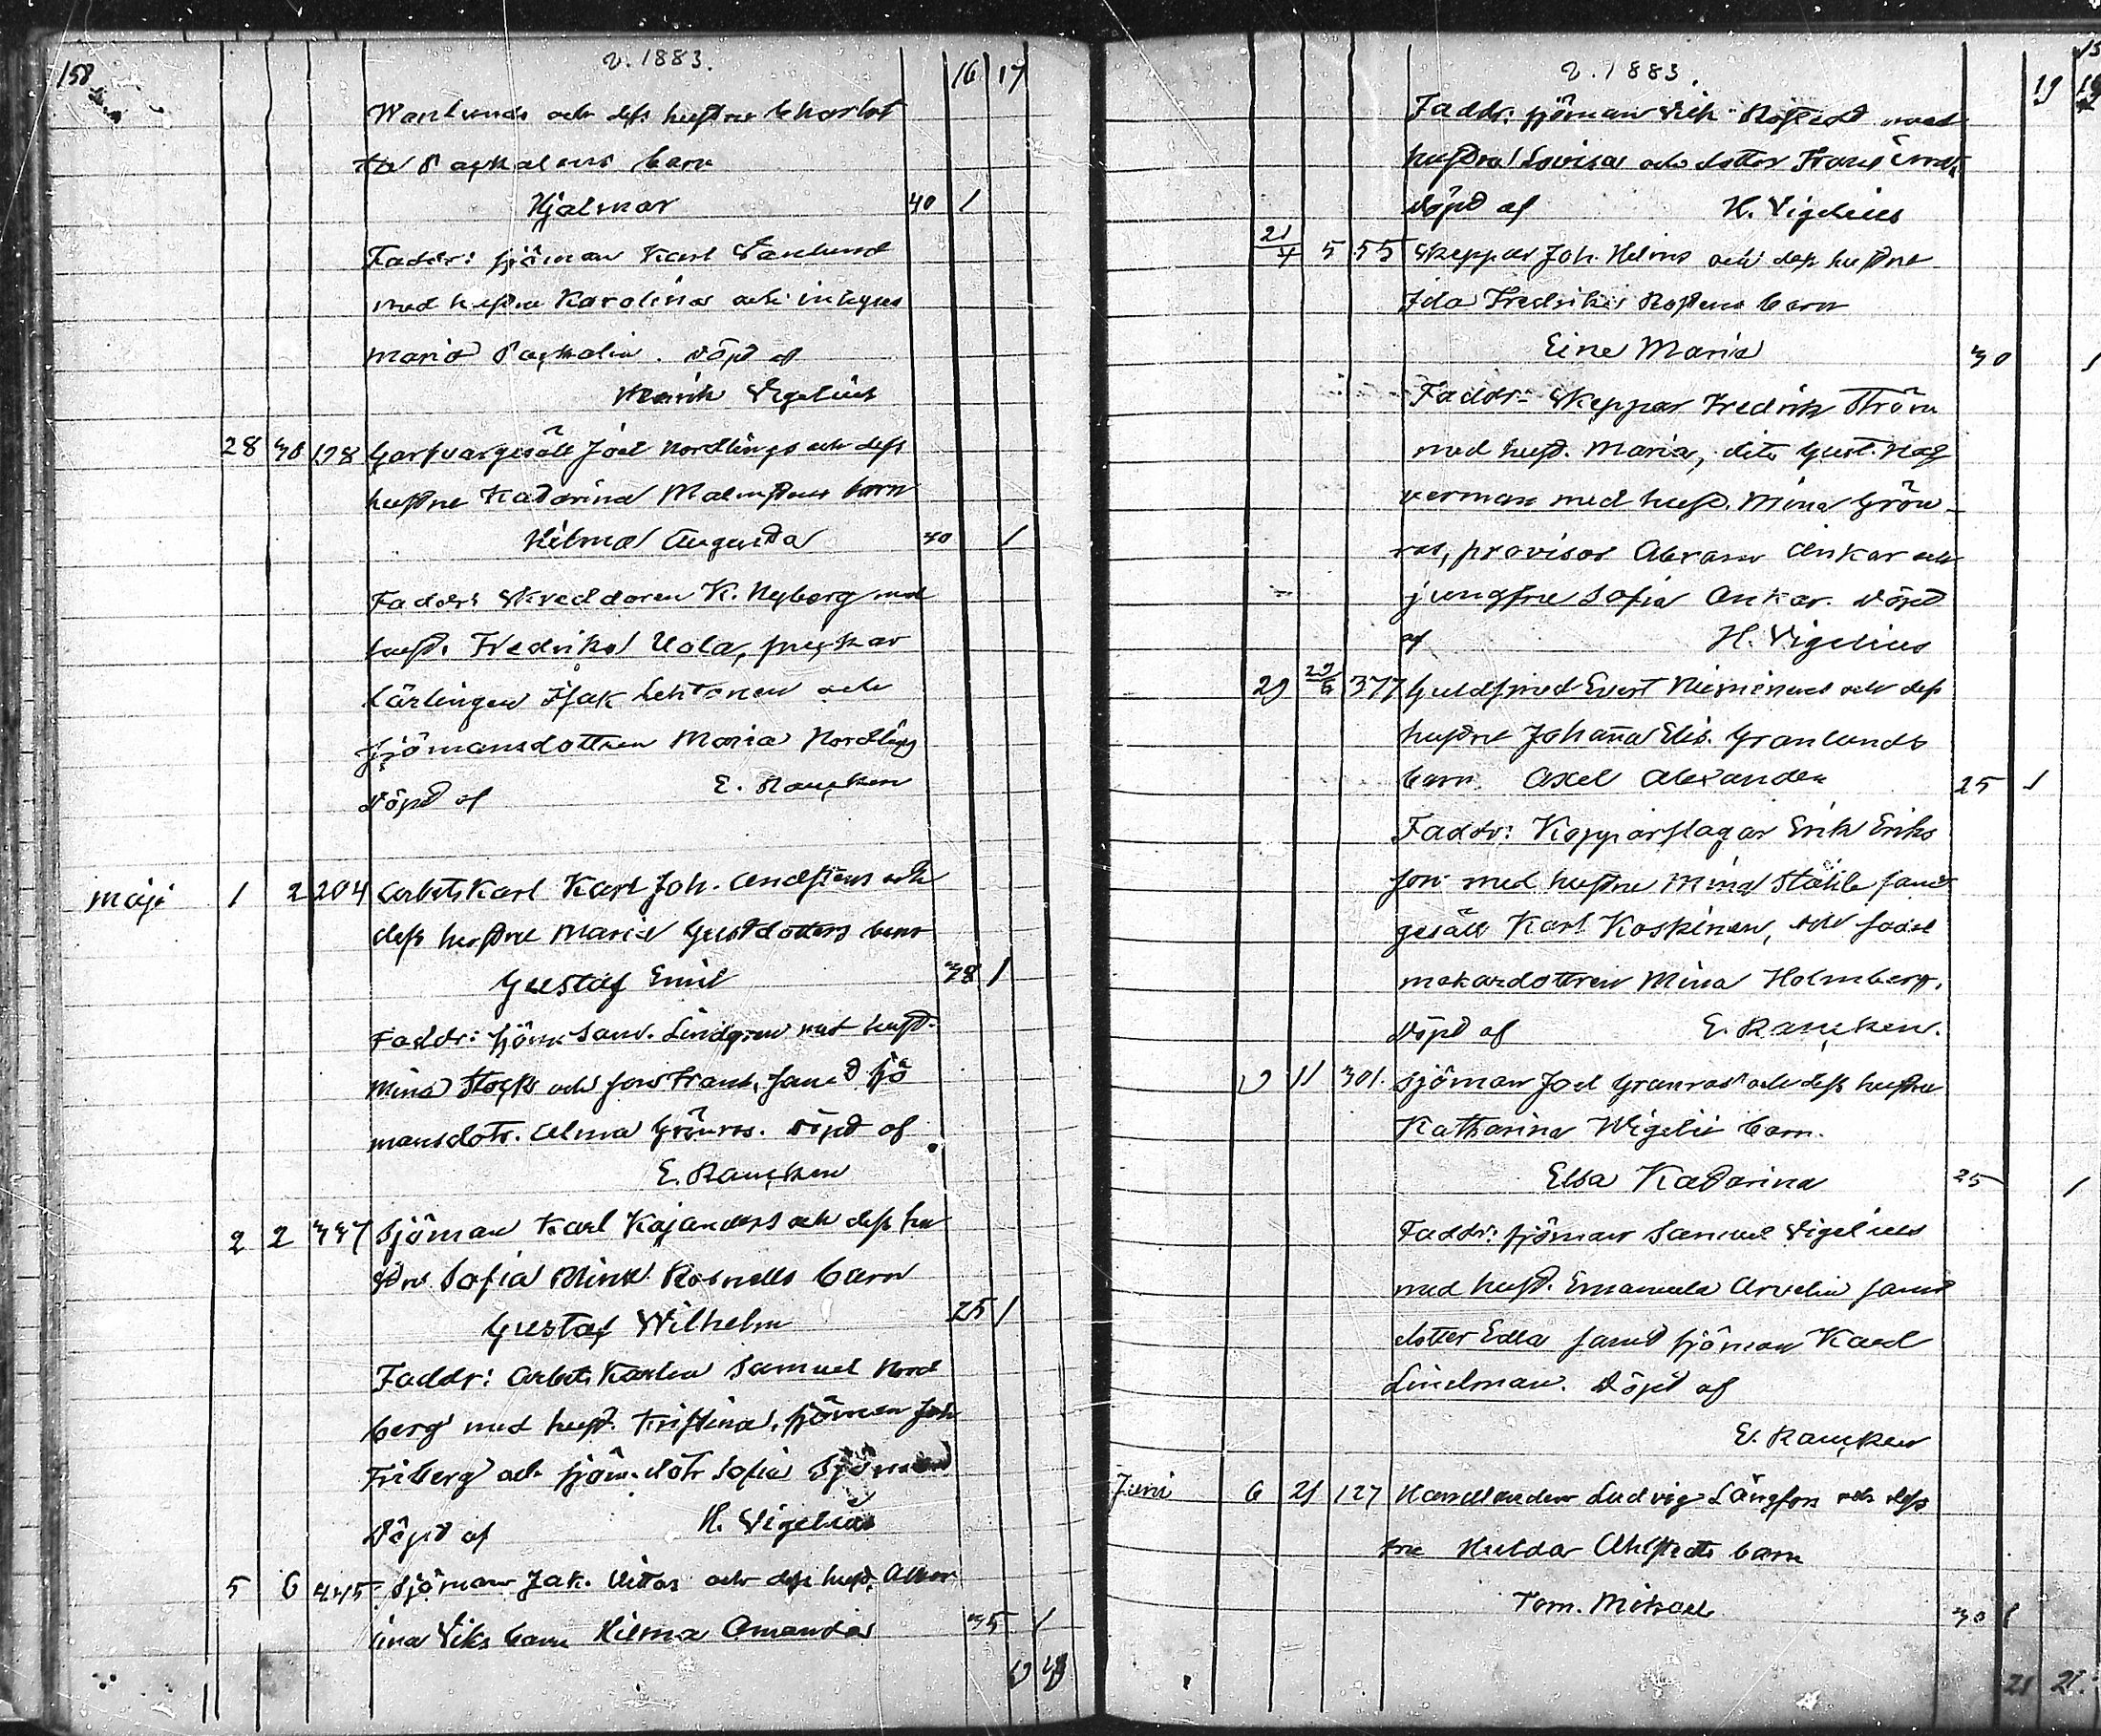 158
v. 1883.
16 17
Wanlunds och dess hustru Charlot
ta Paskalins barn
Hjalmar 40 1
Faddr: sjöman Karl Vanlund
med hustru Karolina och inhyses
Maria Paskalin. Döpd af
Henrik Vigelius
28 30 178 Garfvargesäll Joel Nordlings och dess
hustru Katarina Malmstens barn
Hilma Augusta 40 1
Faddr: Skreddaren K. Nyberg med
hust. Fredrika Uola,
lärlingen Isak Lehtonen och
sjömansdottren Maria Nordling
Döpd af E. Rancken
maji 1 2 204 Arbetskarl Karl Joh. och
dess hustru Maria Gustdotters barn
Gustaf Emil 38 1
Faddr: sjöm Sam. Lindgren med hust.
Mina Stocks och son Frans, samt sjö
mansdotr. Alma Grönros. Döpd af
E. Rancken
2 2 337 Sjöman Karl Kajanders och dess hu
stru Sofia Mina Rosnells barn
Gustaf Wilhelm 25 1
Faddr: Arbetskarlen Samuel Nord
berg med hust. Kristina, sjöman Joh
Friberg och sjöm. dotr Sofia Sjöman
Döpd af H. Vigelius
5 6 445 Sjöman Jak. Vitas och dess hust. Alber
tina Viks barn Hilma Amanda 35 1
v. 1883.
19 19
Faddr: sjöman Vilh. Rostedt med
hustru Lovisa och dotter
Döpd af H. Vigelius
21/4 5 55 Skeppar Joh. Helins och dess hustru
Ida Fredrika Rostens barn
Eine Maria 30 1
Faddr: Skeppar Fredrik Ström
med hust. Maria, dito Gust. Hag
verman med hust. Mina Grön
ros, provisor Abram Ankar och
jungfru Sofia Ankar. Döpd
af H. Vigelius
29 29/6 377 Guldsmed Evert Nieminens och dess
hustru Johanna Elis. Granlunds
barn. Axel Alexander 25 1
Faddr: Kopparslagar Erik Eriks
son med hustru Mina Ståhle samt
gesäll Karl Koskinen, och sadel
makardottren Mina Holmberg.
Döpd af E. Rancken.
9 11 301. Sjöman Joel Granros och dess hustru
Katharina Wigelii barn.
Elsa Katarina 25 1
Faddr: sjöman Samuel Vigelius
med hust. Emanuela Arvelin samt
dotter Edla samt sjöman Karl
Lindman. Döpd af
E. Rancken
Juni 6 21 127 Handlanden Ludvig Långfors och dess
fru Hulda Ahlstedts barn
Tom. Mikael 30 1
21 21.